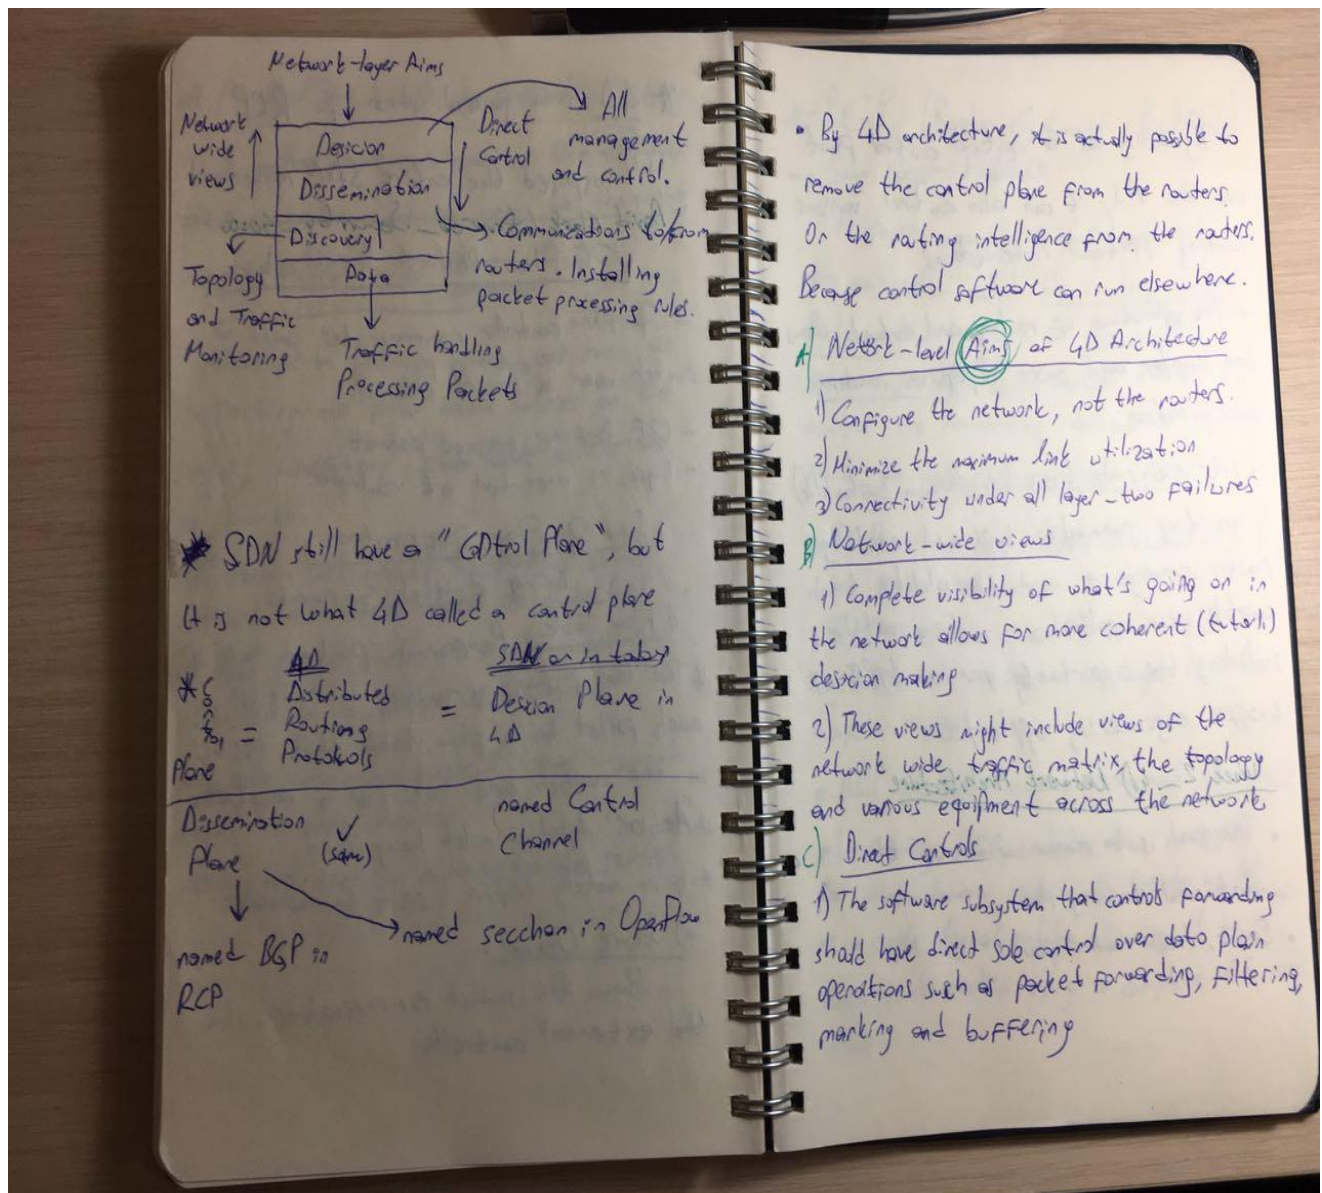 Network-layer Aims
Network
wide
views
Desicion
Dissemination
Discovery
Data
Direct
Control
All
management
and control.
Communications to/from
routers. Installing
packet processing rules.
Topology
and Traffic
Monitoring
Traffic handling
Processing Packets
* SDN still have a "Control Plane", but
it is not what 4D called a control plane
4D
Distributed
Routing
Protokols
=
SDN or in today
Desicion Plane in
4D
=
Plane
Dissemination
Plane
(same)
named Control
Channel
named secchan in Openflow
named BGP in
RCP
• By 4D architecture, it is actually possible to
remove the control plane from the routers.
Or the routing intelligence from the routers.
Because control software can run elsewhere.
A) Network-level Aims of 4D Architecture
1) Configure the network, not the routers.
2) Minimize the maximum link utilization
3) Connectivity under all layer-two failures
B) Network-wide views
1) Complete visibility of what's going on in
the network allows for more coherent (tutarlı)
desicion making
2) These views might include views of the
network wide traffic matrix, the topology
and various equipment across the network
C) Direct Controls
1) The software subsystem that controls forwarding
should have direct sole control over data plain
operations such as packet forwarding, filtering,
marking and buffering